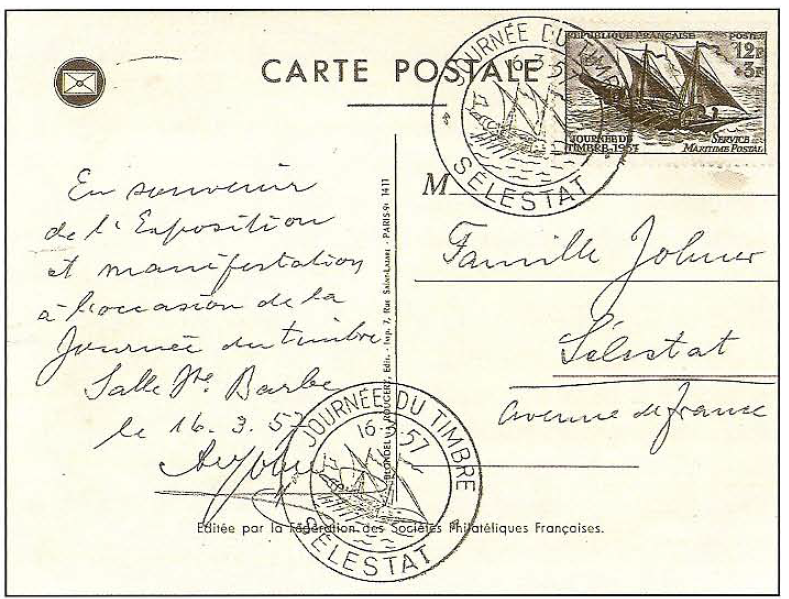 CARTE POSTALE
RÉPUBLIQUE FRANÇAISE
POSTES
12F
+3F
JOURNÉE DU
TIMBRE-1957
SERVICE
MARITIME POSTAL
JOURNÉE DU TIMBRE
16.3.57
SÉLESTAT
En souvenir
de l'Exposition
et manifestation
à l'occasion de la
Journée du timbre
Salle Ste Barbe
le 16.3.57
M
Famille Johner
Sélestat
avenue de france
BLONDEL LA ROUGERY, Édit. - Imp. 7, Rue Saint-Lazare - PARIS-9e 1411
JOURNÉE DU TIMBRE
16.3.57
SÉLESTAT
Éditée par la Fédération des Sociétés Philatéliques Françaises.